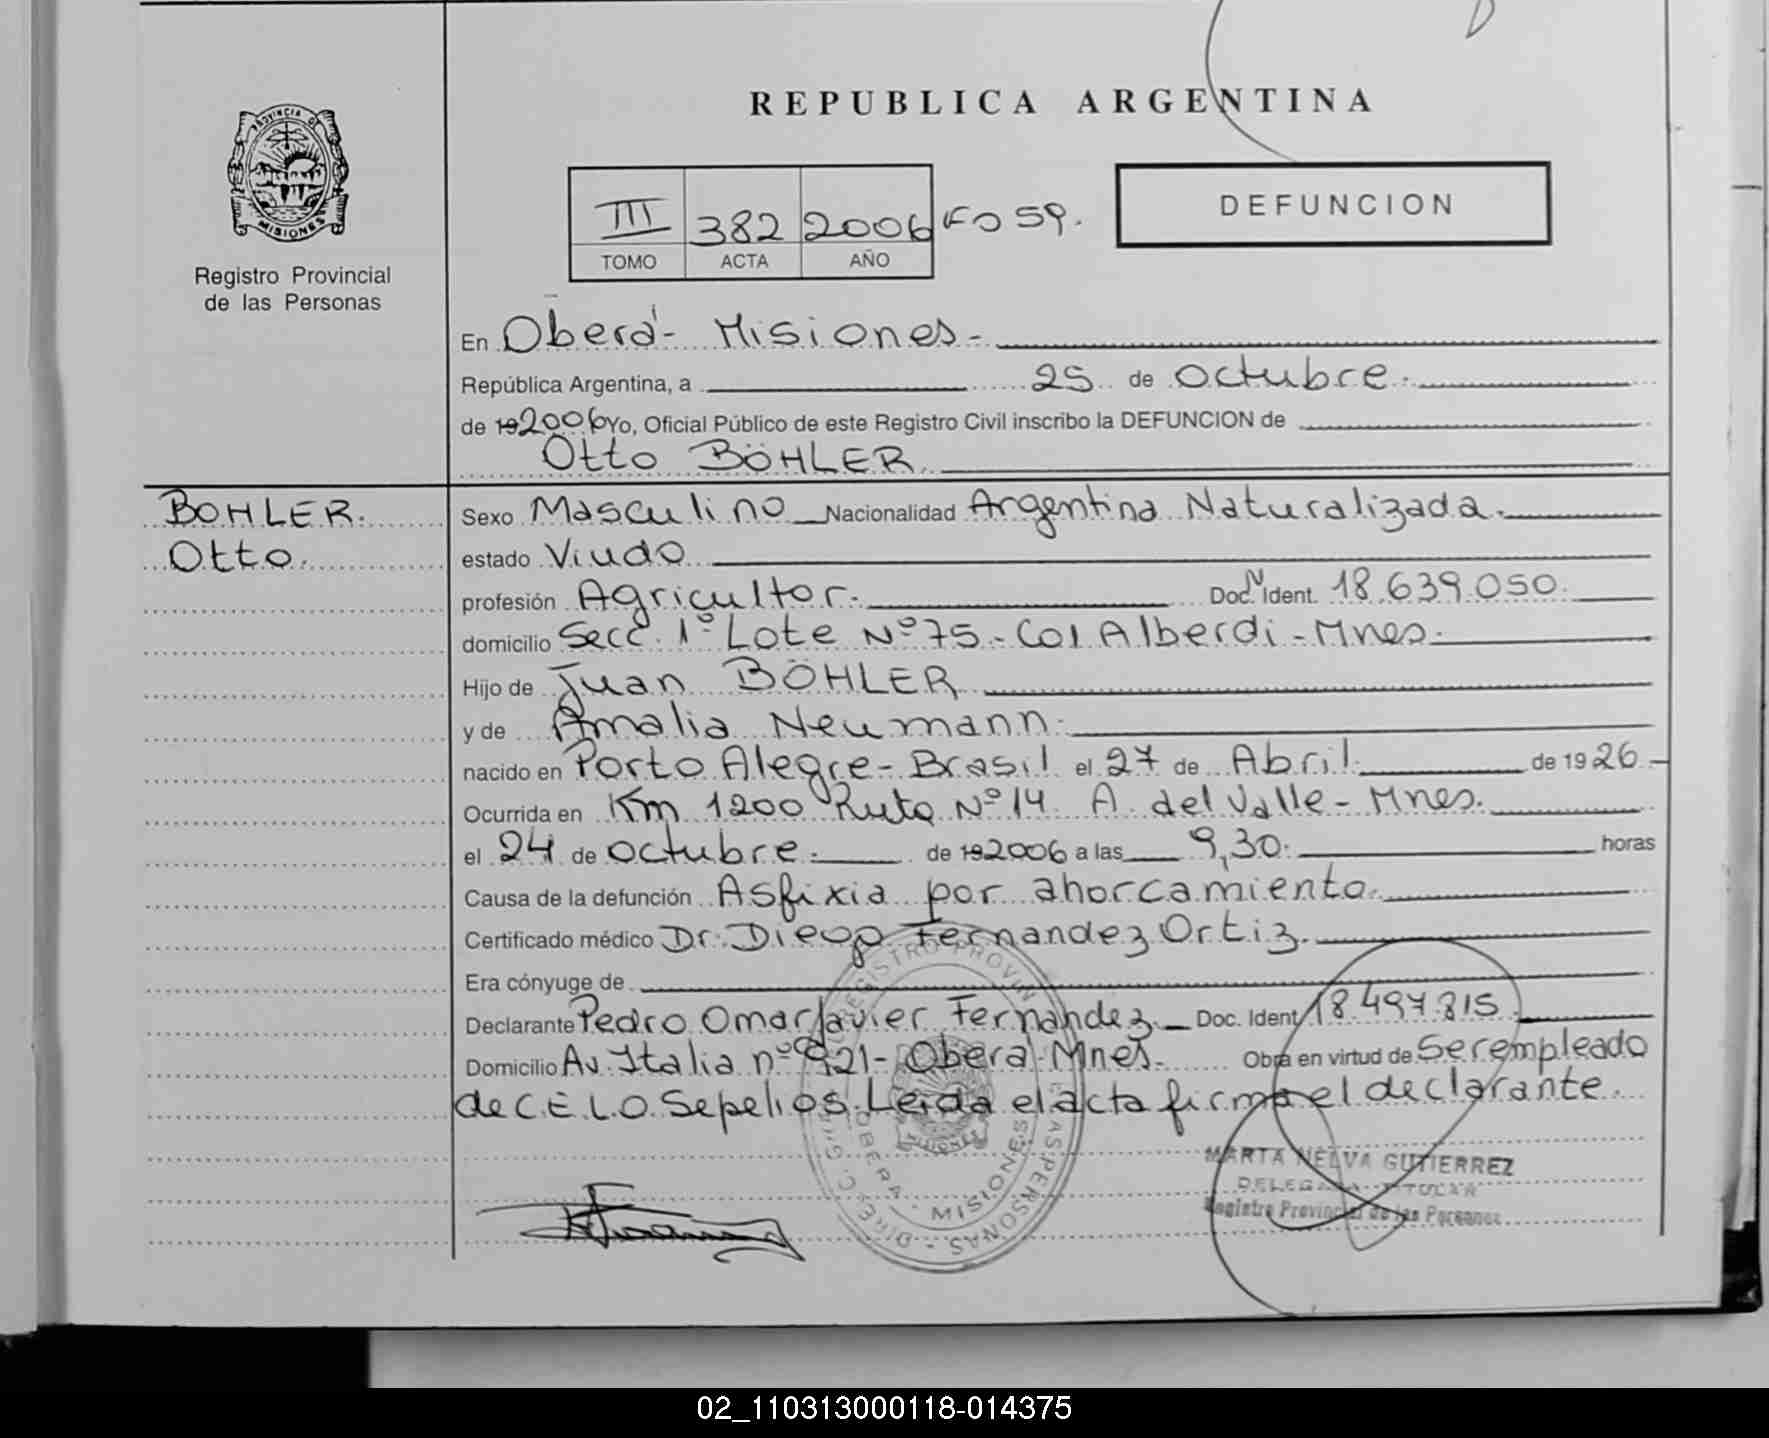 REPUBLICA ARGENTINA
PROVINCIA DE
MISIONES
Registro Provincial
de las Personas
III 382 2006 Fo 59.
TOMO ACTA AÑO
DEFUNCION
En Oberá - Misiones -
República Argentina, a 25 de Octubre.
de 192006 Yo, Oficial Público de este Registro Civil inscribo la DEFUNCION de
Otto BÖHLER
BOHLER.
Otto.
Sexo Masculino Nacionalidad Argentina Naturalizada.
estado Viudo
profesión Agricultor. Doc. N Ident. 18.639.050.
domicilio Secc. 1° Lote N° 75 - Col Alberdi - Mnes.
Hijo de Juan BÖHLER
y de Amalia Neumann.
nacido en Porto Alegre - Brasil el 27 de Abril. de 1926 -
Ocurrida en Km 1200 Ruta N° 14 A. del Valle - Mnes.
el 24 de octubre. de 192006 a las 9,30. horas
Causa de la defunción Asfixia por ahorcamiento.
Certificado médico Dr. Diego Fernandez Ortiz.
Era cónyuge de
Declarante Pedro Omar Javier Fernandez. Doc. Ident. 18.497.815
Domicilio Av. Italia n° 921 - Oberá - Mnes. Obra en virtud de Ser empleado
de C.E.L.O. Sepelios. Leida el acta firma el declarante.
OBERA - MISIONES
MARTA NELVA GUTIERREZ
DELEGADA TITULAR
Registro Provincial de las Personas
02_110313000118-014375